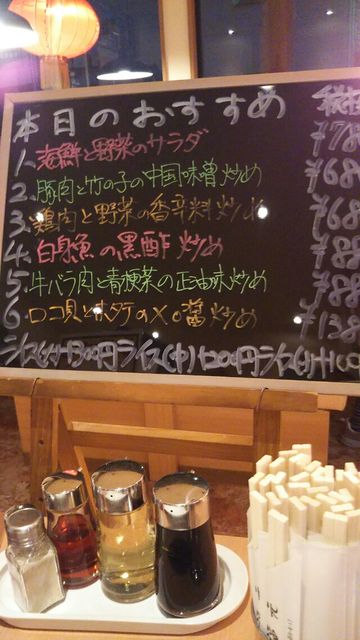 本日のおすすめ 税抜
1. 海鮮と野菜のサラダ ¥78
2. 豚肉と竹の子の中国味噌炒め ¥68
3. 鶏肉と野菜の香辛料炒め ¥68
4. 白身魚の黒酢炒め ¥78
5. 牛バラ肉と青梗菜の正油味炒め ¥78
6. ロコ貝とホタテのXO醤炒め ¥138
ライス(大)300円 ライス(中)200円 ライス(小)100